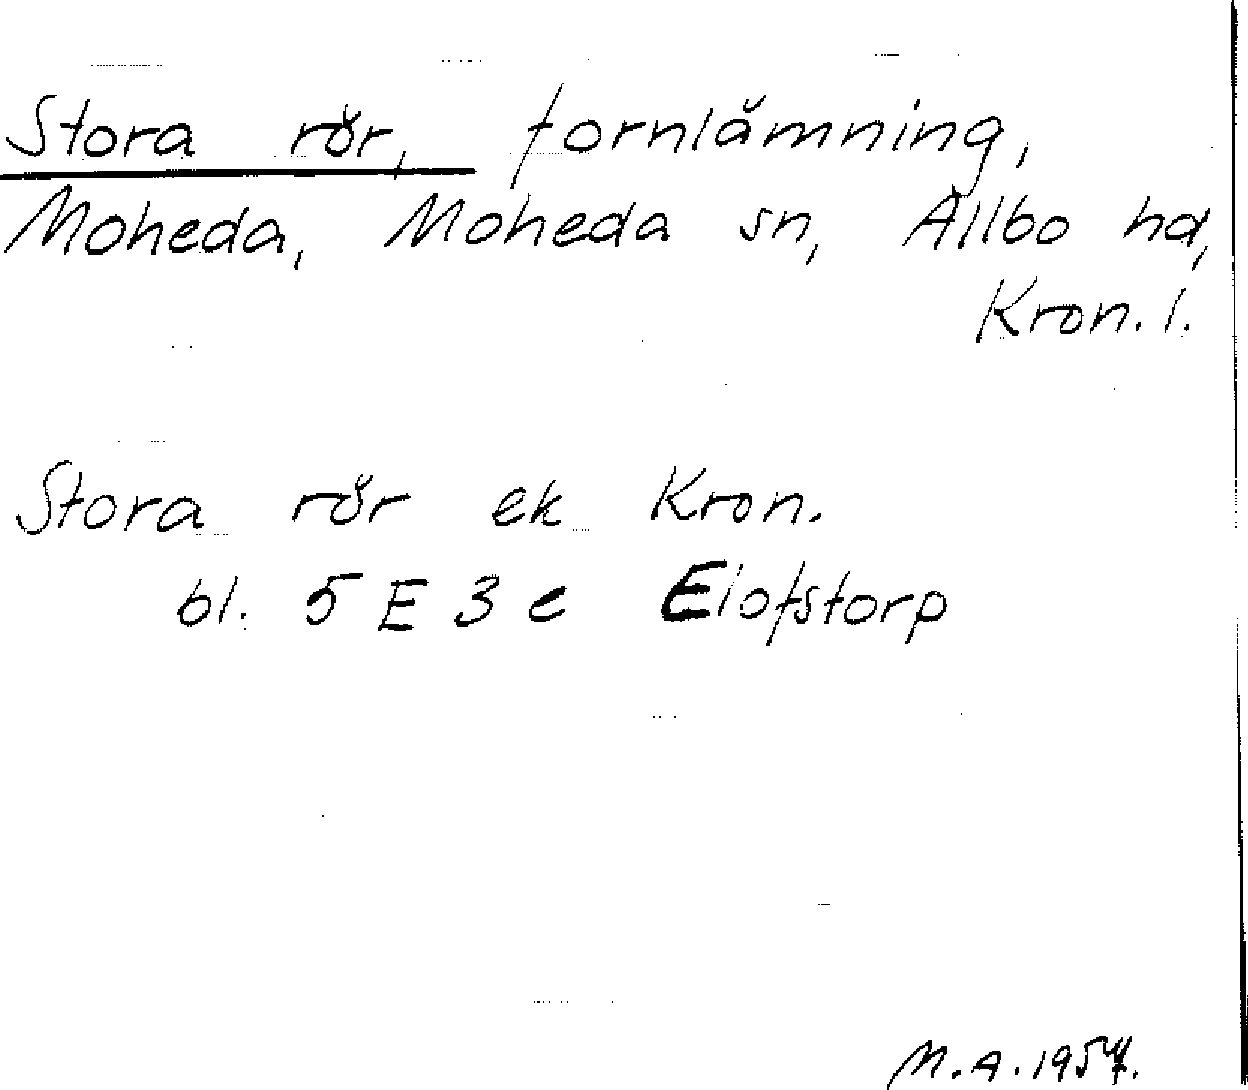 Stora rör, fornlämning,
Moheda, Moheda sn, Allbo hd,
Kron. l.
Stora rör ek Kron.
bl. 5 E 3 e Elofstorp
M.A. 1957.